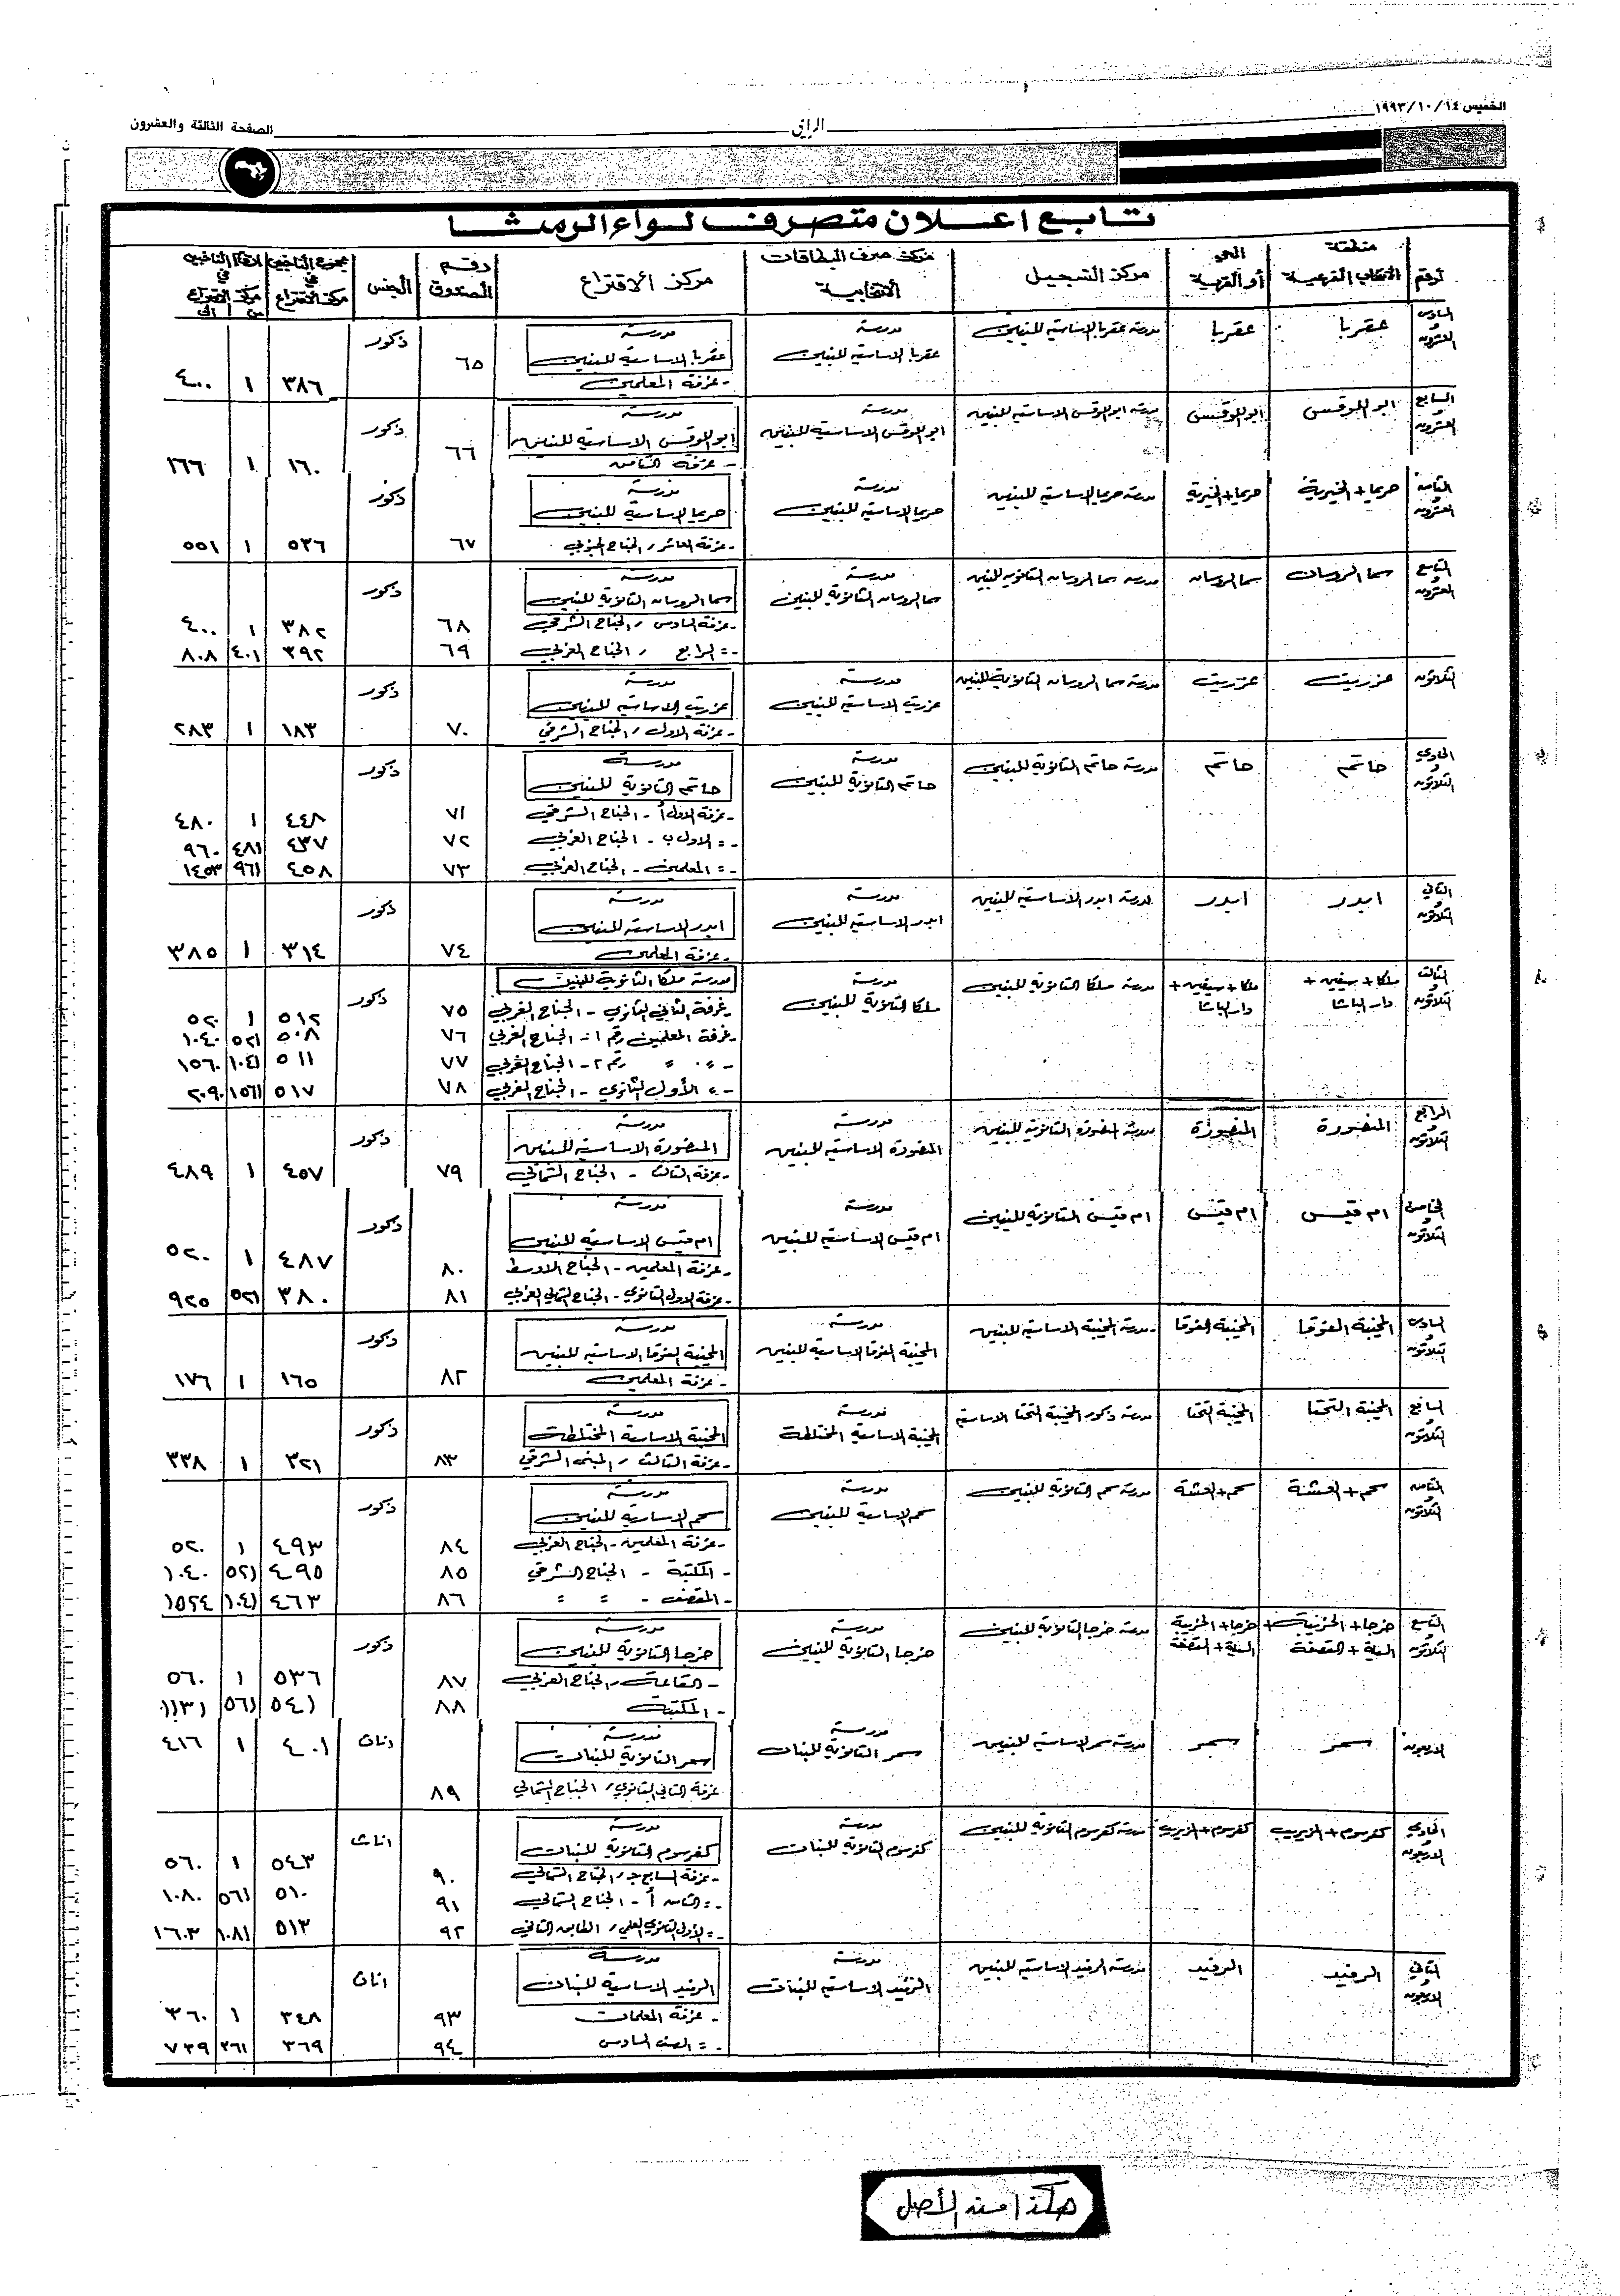 الخميس ١٩٩٣/١٠/١٤
الرأي
الصفحة الثالثة والعشرون
تابع اعلان متصرف لواء الرمثا
الرقم
منطقة الانتخاب الفرعية
الحي أو القرية
مركز التسجيل
مركز صرف البطاقات الانتخابية
مركز الاقتراع
رقم الصندوق
الجنس
مجموع الناخبين في مركز الاقتراع
ارقام الناخبين في مركز الاقتراع من الى
السادس والعشرون عقربا عقربا مدرسة عقربا الاساسية للبنين مدرسة عقربا الاساسية للبنين مدرسة عقربا الاساسية للبنين ذكور
- غرفة المعلمين ٦٥ ٣٨٦ ١ ٤٠٠
السابع والعشرون ابو اللوقس ابو اللوقس مدرسة ابو اللوقس الاساسية للبنين مدرسة ابو اللوقس الاساسية للبنين مدرسة ابو اللوقس الاساسية للبنين ذكور
- غرفة الثامن ٦٦ ١٦٠ ١ ١٦٦
الثامن والعشرون حريما + الخيرية حريما + الخيرية مدرسة حريما الاساسية للبنين مدرسة حريما الاساسية للبنين مدرسة حريما الاساسية للبنين ذكور
- غرفة العاشر / الجناح الجنوبي ٦٧ ٥٣٦ ١ ٥٥١
التاسع والعشرون سما الروسان سما الروسان مدرسة سما الروسان الثانوية للبنين مدرسة سما الروسان الثانوية للبنين مدرسة سما الروسان الثانوية للبنين ذكور
- غرفة السادس / الجناح الشرقي ٦٨ ٣٨٢ ١ ٤٠٠
- = الرابع / الجناح الغربي ٦٩ ٣٩٢ ٤٠١ ٨٠٨
الثلاثون عزريت عزريت مدرسة سما الروسان الثانوية للبنين مدرسة عزريت الاساسية للبنين مدرسة عزريت الاساسية للبنين ذكور
- غرفة الاول / الجناح الشرقي ٧٠ ١٨٣ ١ ٢٨٣
الحادي والثلاثون حاتم حاتم مدرسة حاتم الثانوية للبنين مدرسة حاتم الثانوية للبنين مدرسة حاتم الثانوية للبنين ذكور
- غرفة الاول أ - الجناح الشرقي ٧١ ٤٤٨ ١ ٤٨٠
- = الاول ب - الجناح الغربي ٧٢ ٤٣٧ ٤٨١ ٩٦٠
- = المعلمين - الجناح الغربي ٧٣ ٤٥٨ ٩٦١ ١٤٥٣
الثاني والثلاثون ابدر ابدر مدرسة ابدر الاساسية للبنين مدرسة ابدر الاساسية للبنين مدرسة ابدر الاساسية للبنين ذكور
- غرفة المعلمين ٧٤ ٣١٤ ١ ٣٨٥
الثالث والثلاثون ملكا + سيفين + دار الباشا ملكا + سيفين + دار الباشا مدرسة ملكا الثانوية للبنين مدرسة ملكا الثانوية للبنين مدرسة ملكا الثانوية للبنين ذكور
- غرفة الثاني الثانوي - الجناح الغربي ٧٥ ٥١٢ ١ ٥٢٠
- غرفة المعلمين رقم ١ - الجناح الغربي ٧٦ ٥٠٨ ٥٢١ ١٠٤٠
- = = رقم ٢ - الجناح الغربي ٧٧ ٥١١ ١٠٤١ ١٥٦٠
- = الأول الثانوي - الجناح الغربي ٧٨ ٥١٧ ١٥٦١ ٢٠٩٠
الرابع والثلاثون المنصورة المنصورة مدرسة المنصورة الثانوية للبنين مدرسة المنصورة الاساسية للبنين مدرسة المنصورة الاساسية للبنين ذكور
- غرفة الثالث - الجناح الشمالي ٧٩ ٤٥٧ ١ ٤٨٩
الخامس والثلاثون ام قيس ام قيس ام قيس الثانوية للبنين مدرسة ام قيس الاساسية للبنين مدرسة ام قيس الاساسية للبنين ذكور
- غرفة المعلمين - الجناح الاوسط ٨٠ ٤٨٧ ١ ٥٢٠
- غرفة الاول الثانوي - الجناح الشمالي الغربي ٨١ ٣٨٠ ٥٢١ ٩٢٥
السادس والثلاثون المخيبة الفوقا المخيبة الفوقا مدرسة المخيبة الاساسية للبنين مدرسة المخيبة الفوقا الاساسية للبنين مدرسة المخيبة الفوقا الاساسية للبنين ذكور
- غرفة المعلمين ٨٢ ١٦٥ ١ ١٧٦
السابع والثلاثون المخيبة التحتا المخيبة التحتا مدرسة ذكور المخيبة التحتا الاساسية مدرسة المخيبة الاساسية المختلطة مدرسة المخيبة الاساسية المختلطة ذكور
- غرفة الثالث / المبنى الشرقي ٨٣ ٣٢١ ١ ٣٣٨
الثامن والثلاثون سحم + العشة سحم + العشة مدرسة سحم الثانوية للبنين مدرسة سحم الاساسية للبنين مدرسة سحم الاساسية للبنين ذكور
- غرفة المعلمين - الجناح الغربي ٨٤ ٤٩٣ ١ ٥٢٠
- المكتبة - الجناح الشرقي ٨٥ ٤٩٥ ٥٢١ ١٠٤٠
- المقصف - = = ٨٦ ٤٦٣ ١٠٤١ ١٥٢٤
التاسع والثلاثون خرجا + الخزيبة + القصفة خرجا + الخزيبة + القصفة مدرسة خرجا الثانوية للبنين مدرسة خرجا الثانوية للبنين مدرسة خرجا الثانوية للبنين ذكور
- القاعة / الجناح الغربي ٨٧ ٥٣٦ ١ ٥٦٠
- المكتبة ٨٨ ٥٤١ ٥٦١ ١١٣١
الاربعون سمر سمر مدرسة سمر الاساسية للبنين مدرسة سمر الثانوية للبنات مدرسة سمر الثانوية للبنات اناث
غرفة الثاني الثانوي / الجناح الشمالي ٨٩ ٤٠١ ١ ٤١٦
الحادي والاربعون كفرسوم + المزيريب كفرسوم + المزيريب مدرسة كفرسوم الثانوية للبنين مدرسة كفرسوم الثانوية للبنات مدرسة كفرسوم الثانوية للبنات اناث
- غرفة السابع ج / الجناح الشمالي ٩٠ ٥٤٣ ١ ٥٦٠
- = الثامن أ - الجناح الشمالي ٩١ ٥١٠ ٥٦١ ١٠٨٠
- = الأول الثانوي العلمي / الطابق الثاني ٩٢ ٥١٣ ١٠٨١ ١٦٠٣
الثاني والاربعون الرفيد الرفيد مدرسة الرفيد الاساسية للبنين مدرسة الرفيد الاساسية للبنات مدرسة الرفيد الاساسية للبنات اناث
- غرفة المعلمات ٩٣ ٣٤٨ ١ ٣٦٠
- = الصف السادس ٩٤ ٣٦٩ ٣٦١ ٧٣٩
هكذا من الأصل